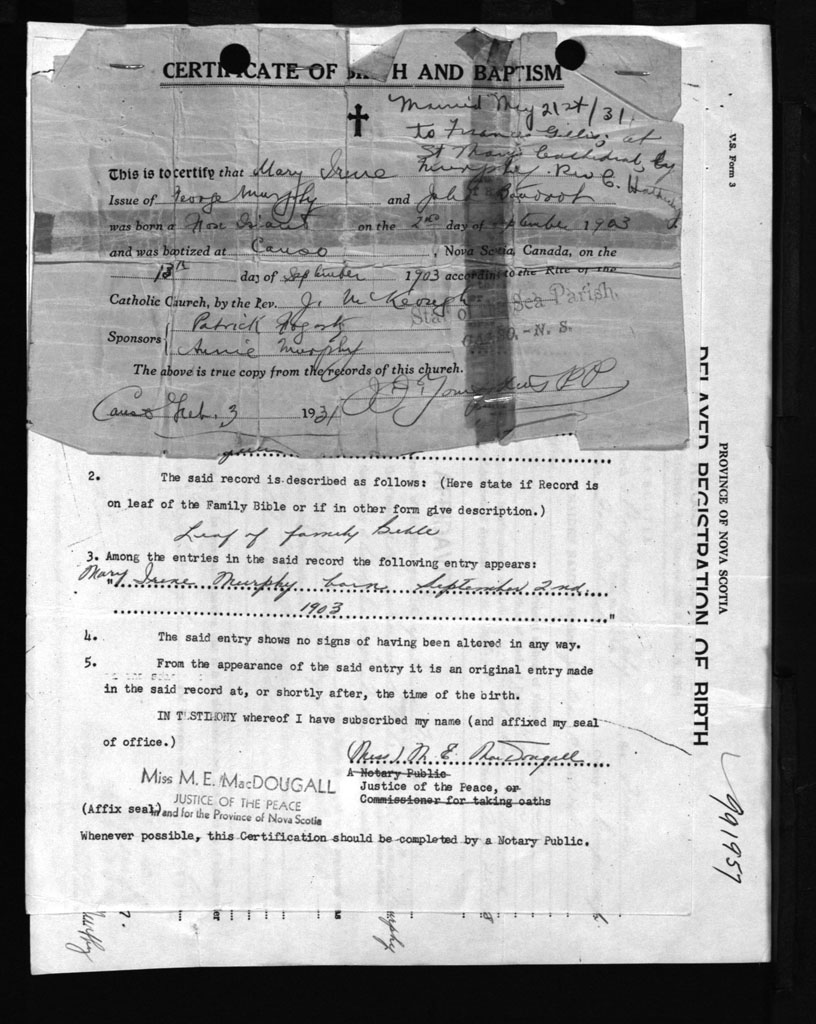 CERTIFICATE OF BIRTH AND BAPTISM
Married May 21st/31
to Francis Gillis, at
St Cathedral, by
Murphy. Rev C.
This is to certify that Mary Irene
Issue of George Murphy and
was born a on the 2nd day of September 1903
and was baptized at Canso, Nova Scotia, Canada, on the
13th day of September 1903 according to the Rite of the
Catholic Church, by the Rev. J. McKeough
Star of the Sea Parish,
CANSO, - N. S.
Sponsors Patrick Fogarty
Annie Murphy
The above is true copy from the records of this church.
Canso Feb. 3 1931 P P
2. The said record is described as follows: (Here state if Record is
on leaf of the Family Bible or if in other form give description.)
Leaf of family Bible
3. Among the entries in the said record the following entry appears:
"Mary Irene Murphy born September 2nd.
1903"
4. The said entry shows no signs of having been altered in any way.
5. From the appearance of the said entry it is an original entry made
in the said record at, or shortly after, the time of the birth.
IN TESTIMONY whereof I have subscribed my name (and affixed my seal
of office.)
Miss M. E. MacDougall
A Notary Public
Justice of the Peace, or
Commissioner for taking oaths
Miss M. E. MacDOUGALL
JUSTICE OF THE PEACE
in and for the Province of Nova Scotia
(Affix seal)
Whenever possible, this Certification should be completed by a Notary Public.
7.
Murphy
Murphy
V.S. Form 3
PROVINCE OF NOVA SCOTIA
DELAYED REGISTRATION OF BIRTH
991957